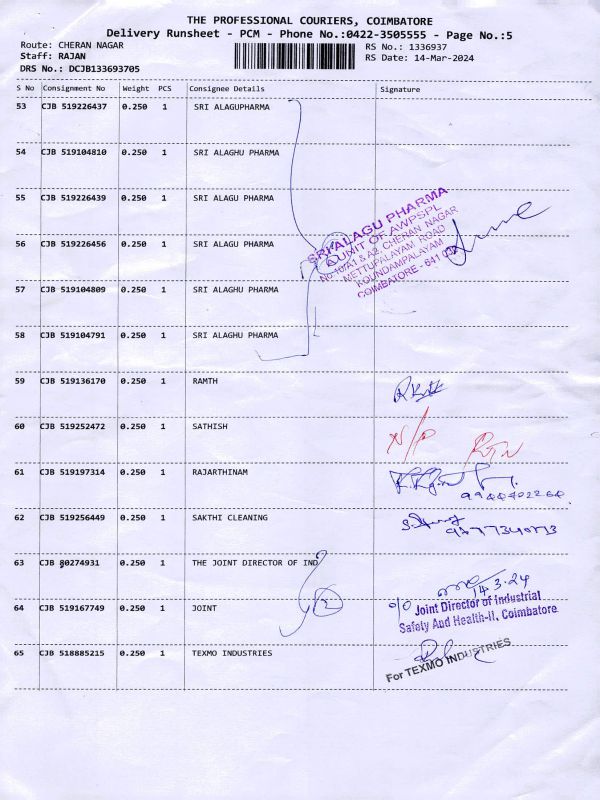 THE PROFESSIONAL COURIERS, COIMBATORE
Delivery Runsheet - PCM - Phone No.:0422-3505555 - Page No.:5
Route: CHERAN NAGAR
RS No.: 1336937
Staff: RAJAN
RS Date: 14-Mar-2024
DRS No.: DCJB133693705
S No Consignment No Weight PCS Consignee Details Signature
53 CJB 519226437 0.250 1 SRI ALAGUPHARMA
54 CJB 519104810 0.250 1 SRI ALAGHU PHARMA
55 CJB 519226439 0.250 1 SRI ALAGU PHARMA
56 CJB 519226456 0.250 1 SRI ALAGU PHARMA
SRI ALAGU PHARMA
A UNIT OF AWPSPL
No.10/A1 & A2, CHERAN NAGAR
METTUPALAYAM ROAD
KOUNDAMPALAYAM
COIMBATORE - 641
57 CJB 519104809 0.250 1 SRI ALAGHU PHARMA
58 CJB 519104791 0.250 1 SRI ALAGHU PHARMA
59 CJB 519136170 0.250 1 RAMTH
60 CJB 519252472 0.250 1 SATHISH
N/P RTN
61 CJB 519197314 0.250 1 RAJARTHINAM
62 CJB 519256449 0.250 1 SAKTHI CLEANING
63 CJB 80274931 0.250 1 THE JOINT DIRECTOR OF IND
14.3.24
64 CJB 519167749 0.250 1 JOINT
2
o/o Joint Director of Industrial
Safety And Health-II, Coimbatore
65 CJB 518885215 0.250 1 TEXMO INDUSTRIES
For TEXMO INDUSTRIES